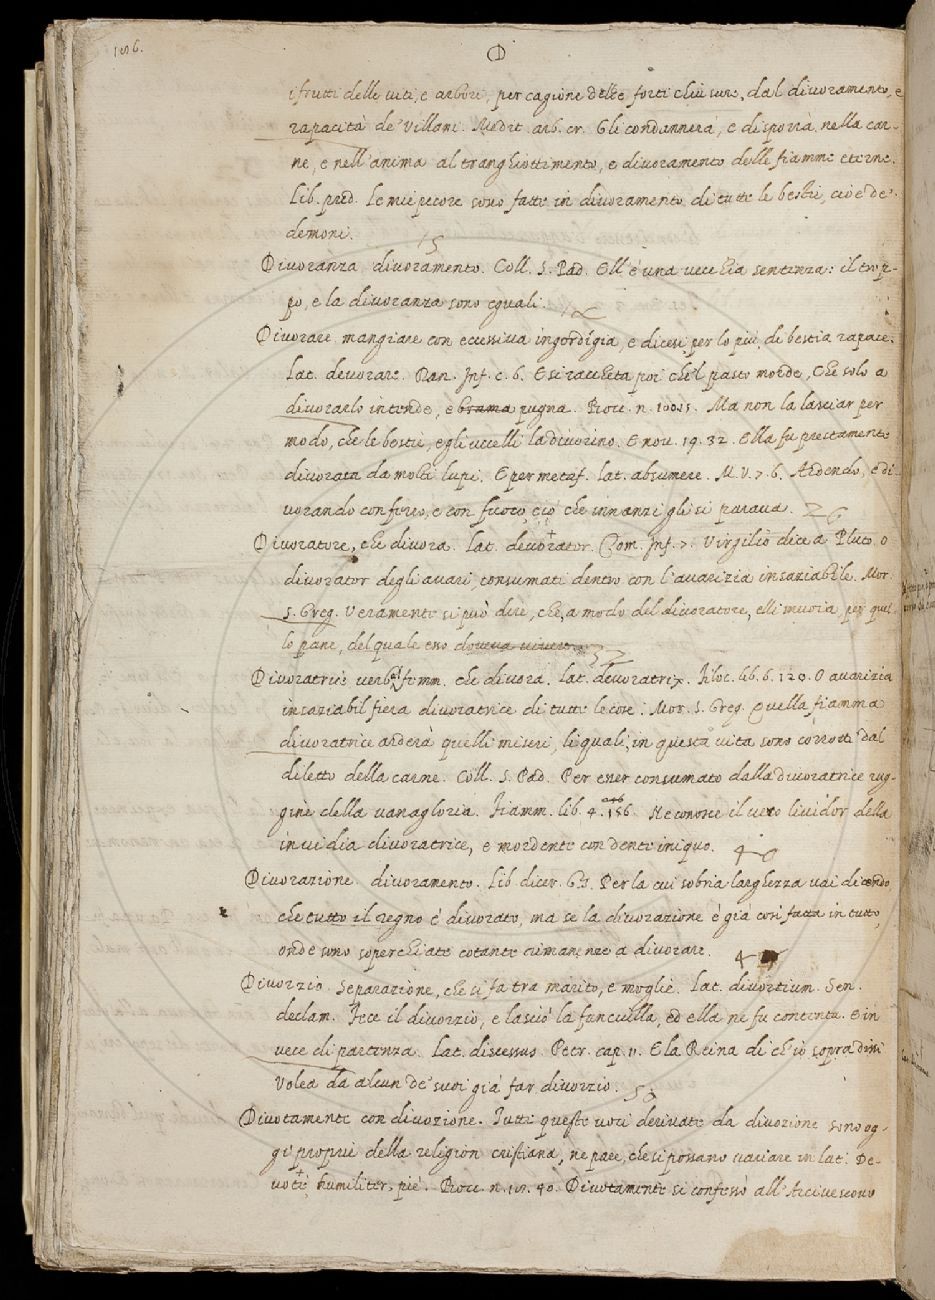 186.
D
i frutti delle viti, e arbori, per cagione delle forti chiusure, dal divoramento, e
rapacità de' villani. Medit. arb. cr. Gli condannerà, e disporrà nella car-
ne, e nell'anima al tranghiottimento, e divoramento delle fiamme eterne.
Lib. pred. Le mie pecore sono fatte in divoramento di tutte le bestie, cioè de'
demoni.
15
Divoranza divoramento. Coll. S. Pad. Ell'è una vecchia sentenza: il trop-
po, e la divoranza sono eguali.
Divorare mangiare con eccessiva ingordigia, e dicesi per lo più di bestia rapace.
lat. devorare. Dan. Inf. c. 6. E si racqueta poi che'l pasto morde, Che solo a
divorarlo intende, e brama pugna. Bocc. n. 100.15. Ma non la lasciar per
modo, che le bestie, e gli uccelli la divorino. E nov. 19. 32. Ella fu prestamente
divorata da molti lupi. E per metaf. lat. absumere. M. V. 7. 6. Ardendo, e di-
vorando con ferro, e con fuoco, ciò che innanzi gli si parava.
26
Divoratore, che divora. Lat. devorator. Com. Inf. 7. Virgilio dice a Pluto o
divorator degli avari, consumati dentro con l'avarizia insaziabile. Mor.
S. Greg. Veramente si può dire, che, a modo del divoratore, elli muoia, per quel
lo pane, del quale esso doveva vivere.
32
Divoratrice verbal femm. che divora. Lat. devoratrix. Filoc. lib. 6. 120. O avarizia
insaziabil fiera divoratrice di tutte le cose. Mor. S. Greg. Quella fiamma
divoratrice arderà quelli miseri, li quali, in questa vita sono corrotti dal
diletto della carne. Coll. S. Pad. Per esser consumato dalla divoratrice rug-
gine della vanagloria. Fiamm. lib. 4. 156. Ne conosce il vero lividor della
invidia divoratrice, e mordente con dente iniquo.
40
Divorazione. divoramento. Lib. dicer. 63. Per la cui sobria larghezza vai dicendo
che tutto il regno è divorato, ma se la divorazione è già così fatta in tutto,
onde sono soperchiate cotante rimanenze a divorare.
Divorzio. Separazione, che si fa tra marito, e moglie. Lat. divortium. Sen.
declam. Fece il divorzio, e lasciò la fanciulla, ed ella ne fu contenta. E in
vece di partenza. Lat. discessus. Petr. cap. 11. E la Reina di ch'io sopra dissi
Volea da alcun de' suoi già far divorzio.
50
Divotamente con divozione. Tutte queste voci derivate da divozione sono og-
gi proprie della religion cristiana, ne pare, che si possano variare in lat. De-
vote, humiliter, piè. Bocc. n. 101. 40. Divotamente si confessò all'Arcivescovo